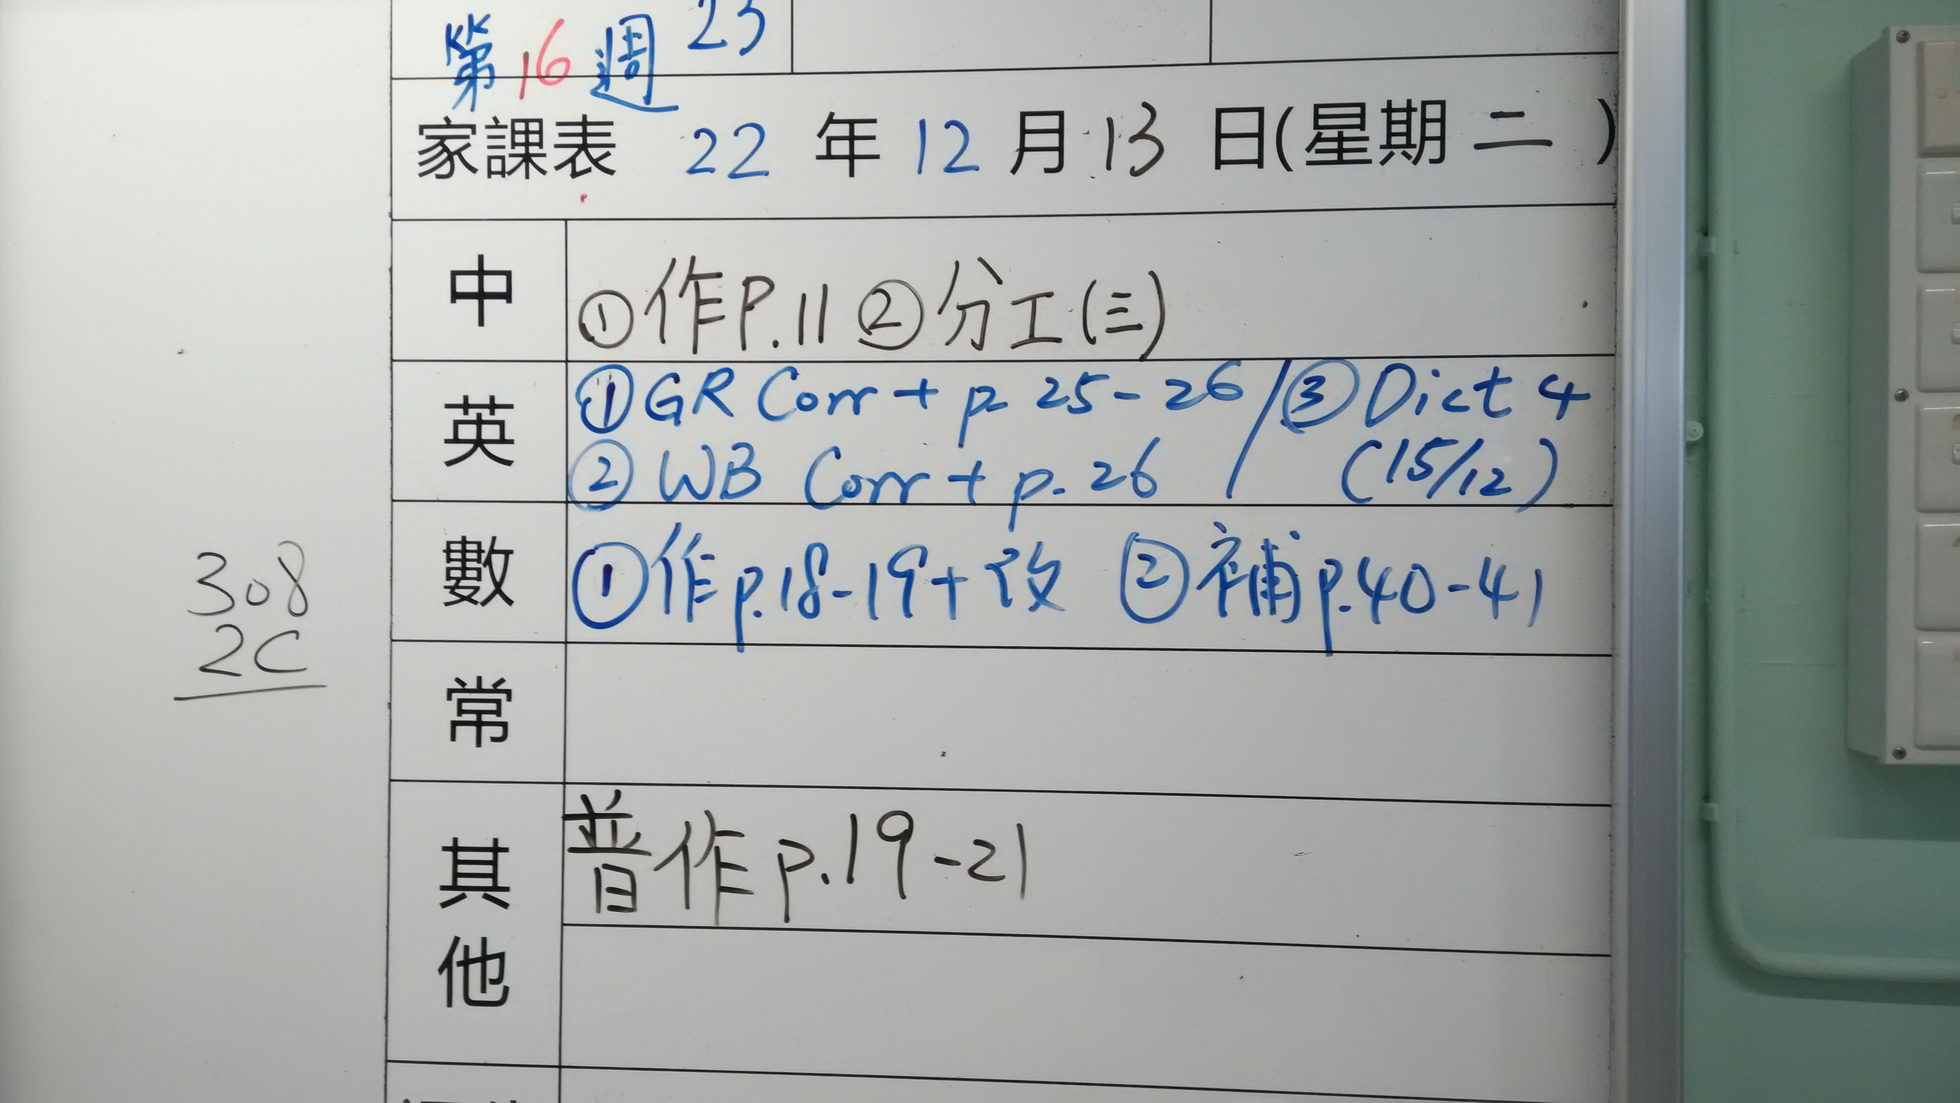 第16週 23
家課表 22年12月13日(星期二)
中 ①作P.11 ②分工(三)
英 ①GR Corr + p 25-26 / ③Dict 4
②WB Corr + p. 26 (15/12)
數 ①作p.18-19+改 ②補p.40-41
308
2C
常
其他 普作p.19-21